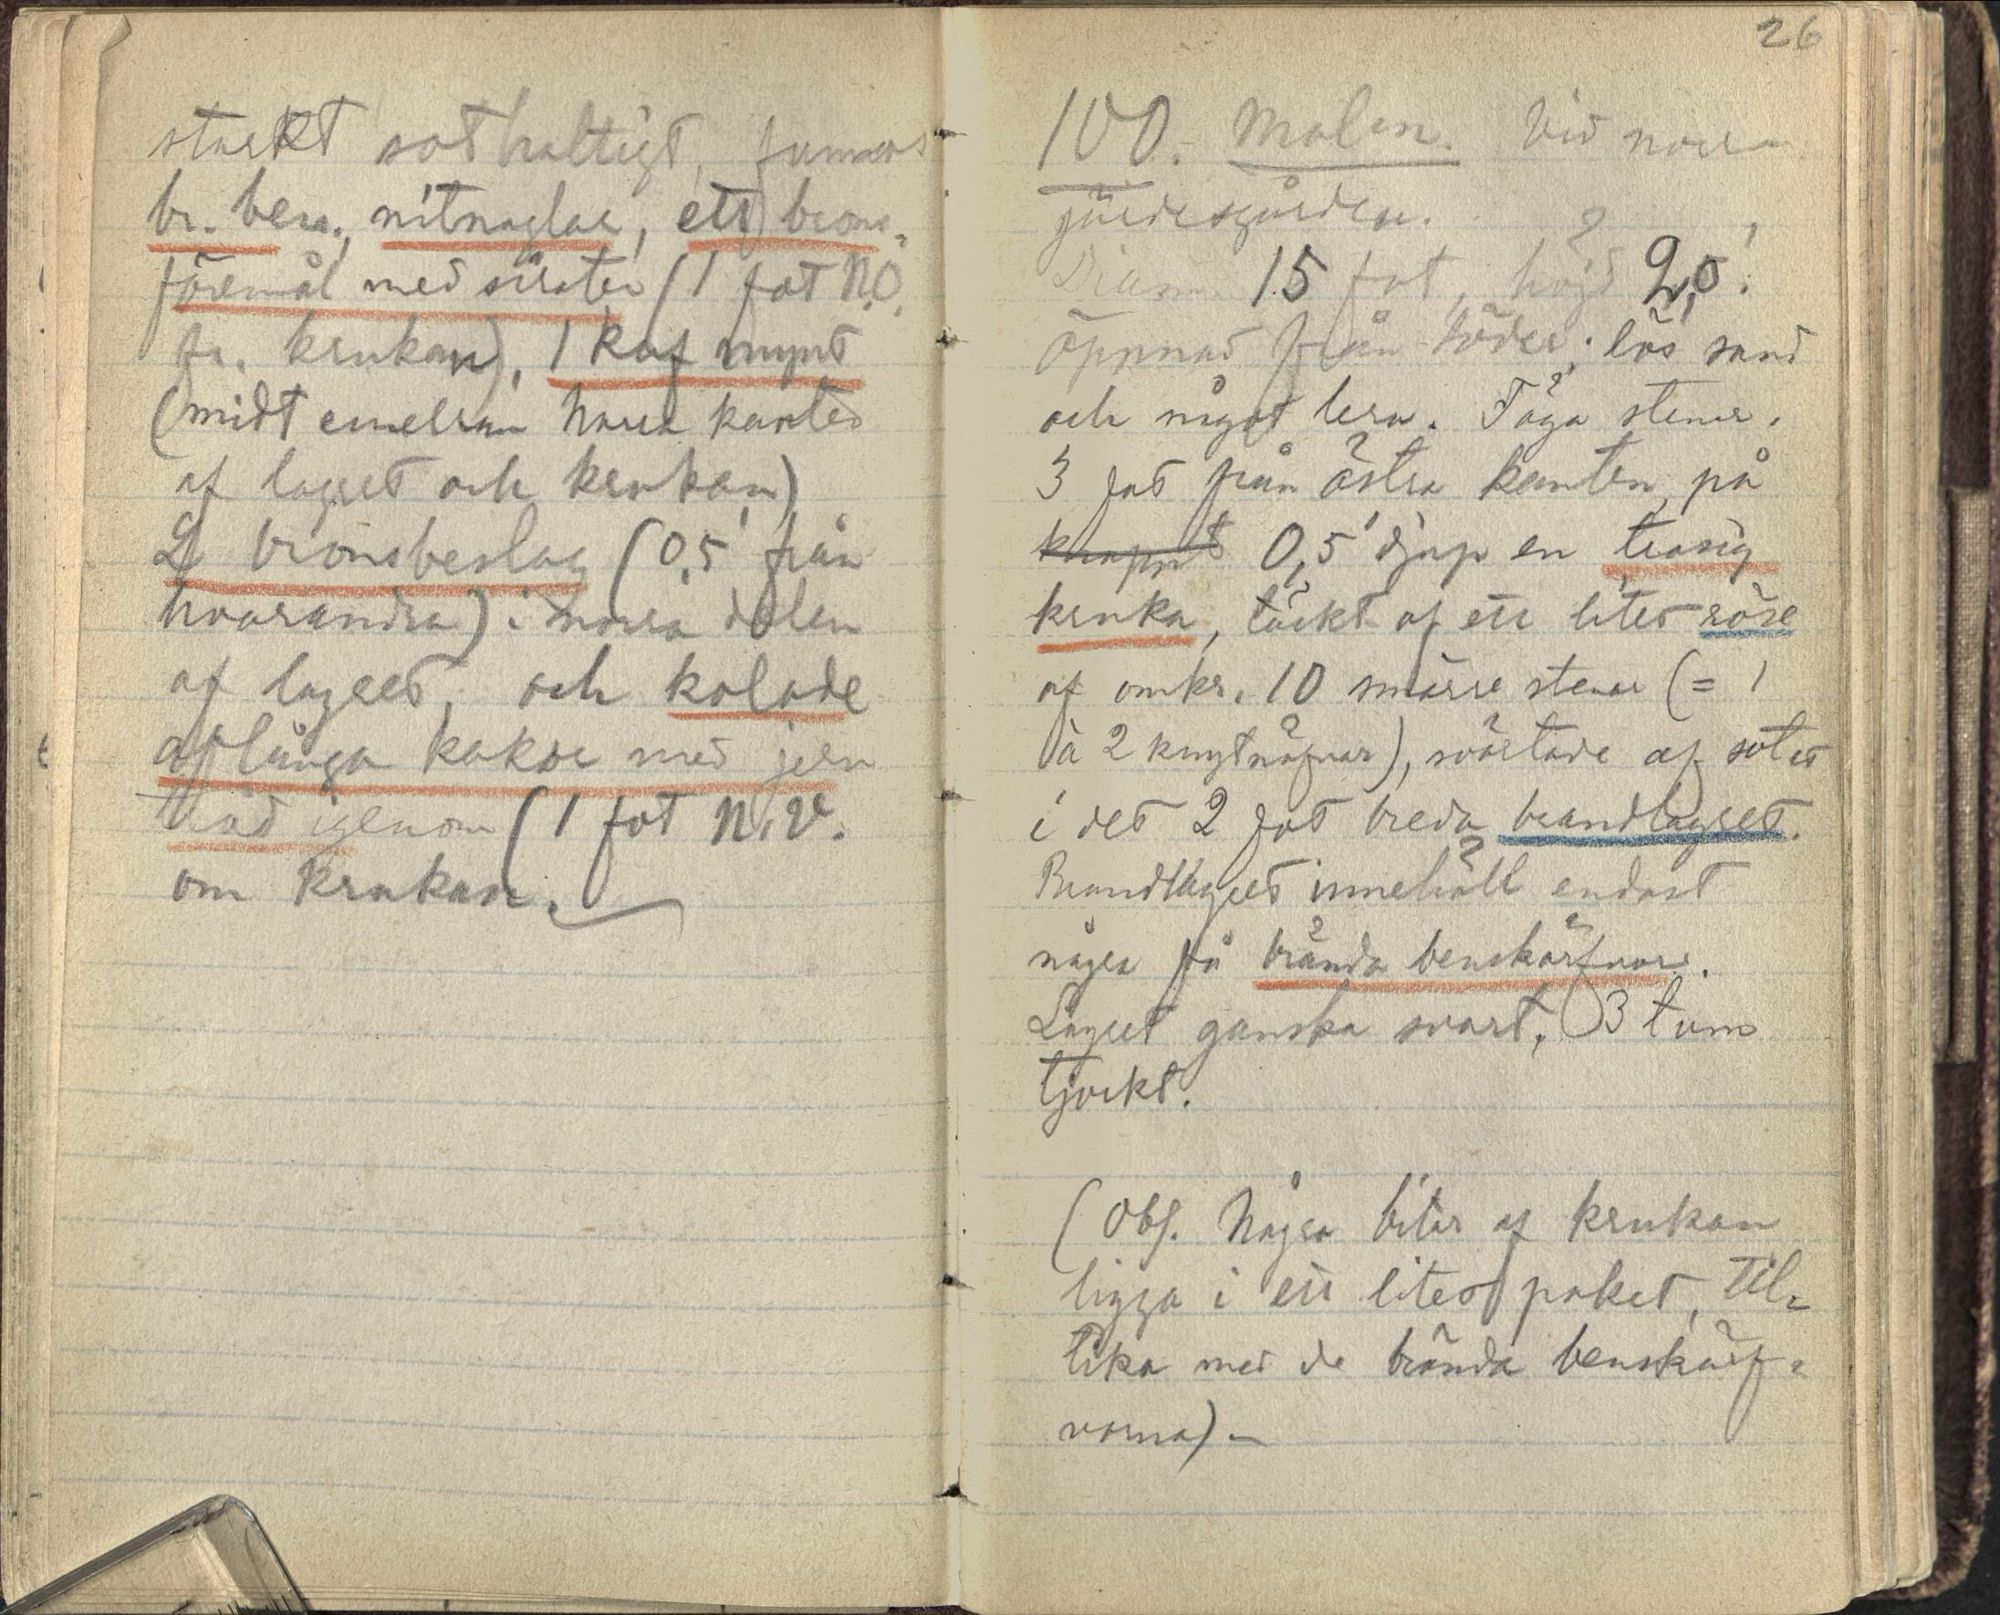 starkt sothaltigt, funnos
br. ben, nitnaglar, ett brons-
föremål med sirater (1 fot N.O.
fr. krukan), 1 kuf mynt
(midt emellan norra kanten
af lagret och krukan)
2 bronsbeslag (0,5' från
hvarandra) i norra delen
af lagret, och kolade
aflånga kakor med jern
tråd igenom (1 fot N.V.
om krukan.
26
100. Malen. Vid norra
gärdesgården.
Diam. 15 fot, höjd 2,5'.
Öppnad från söder; lös sand
och något lera. Våga stenar.
3 fot från östra kanten, på
knappt 0,5' djup en trasig
kruka, täckt af ett litet röse
af omkr. 10 smärre stenar (= 1
à 2 knytnäfvar), svärtade af sotet
i det 2 fot breda brandlagret.
Brandlagret innehöll endast
några få brända benskärfvor.
Lagret ganska svart, 3 tum
tjockt.
(Obs. Några bitar af krukan
ligga i ett litet paket, til-
lika med de brända benskärf-
vorna) –